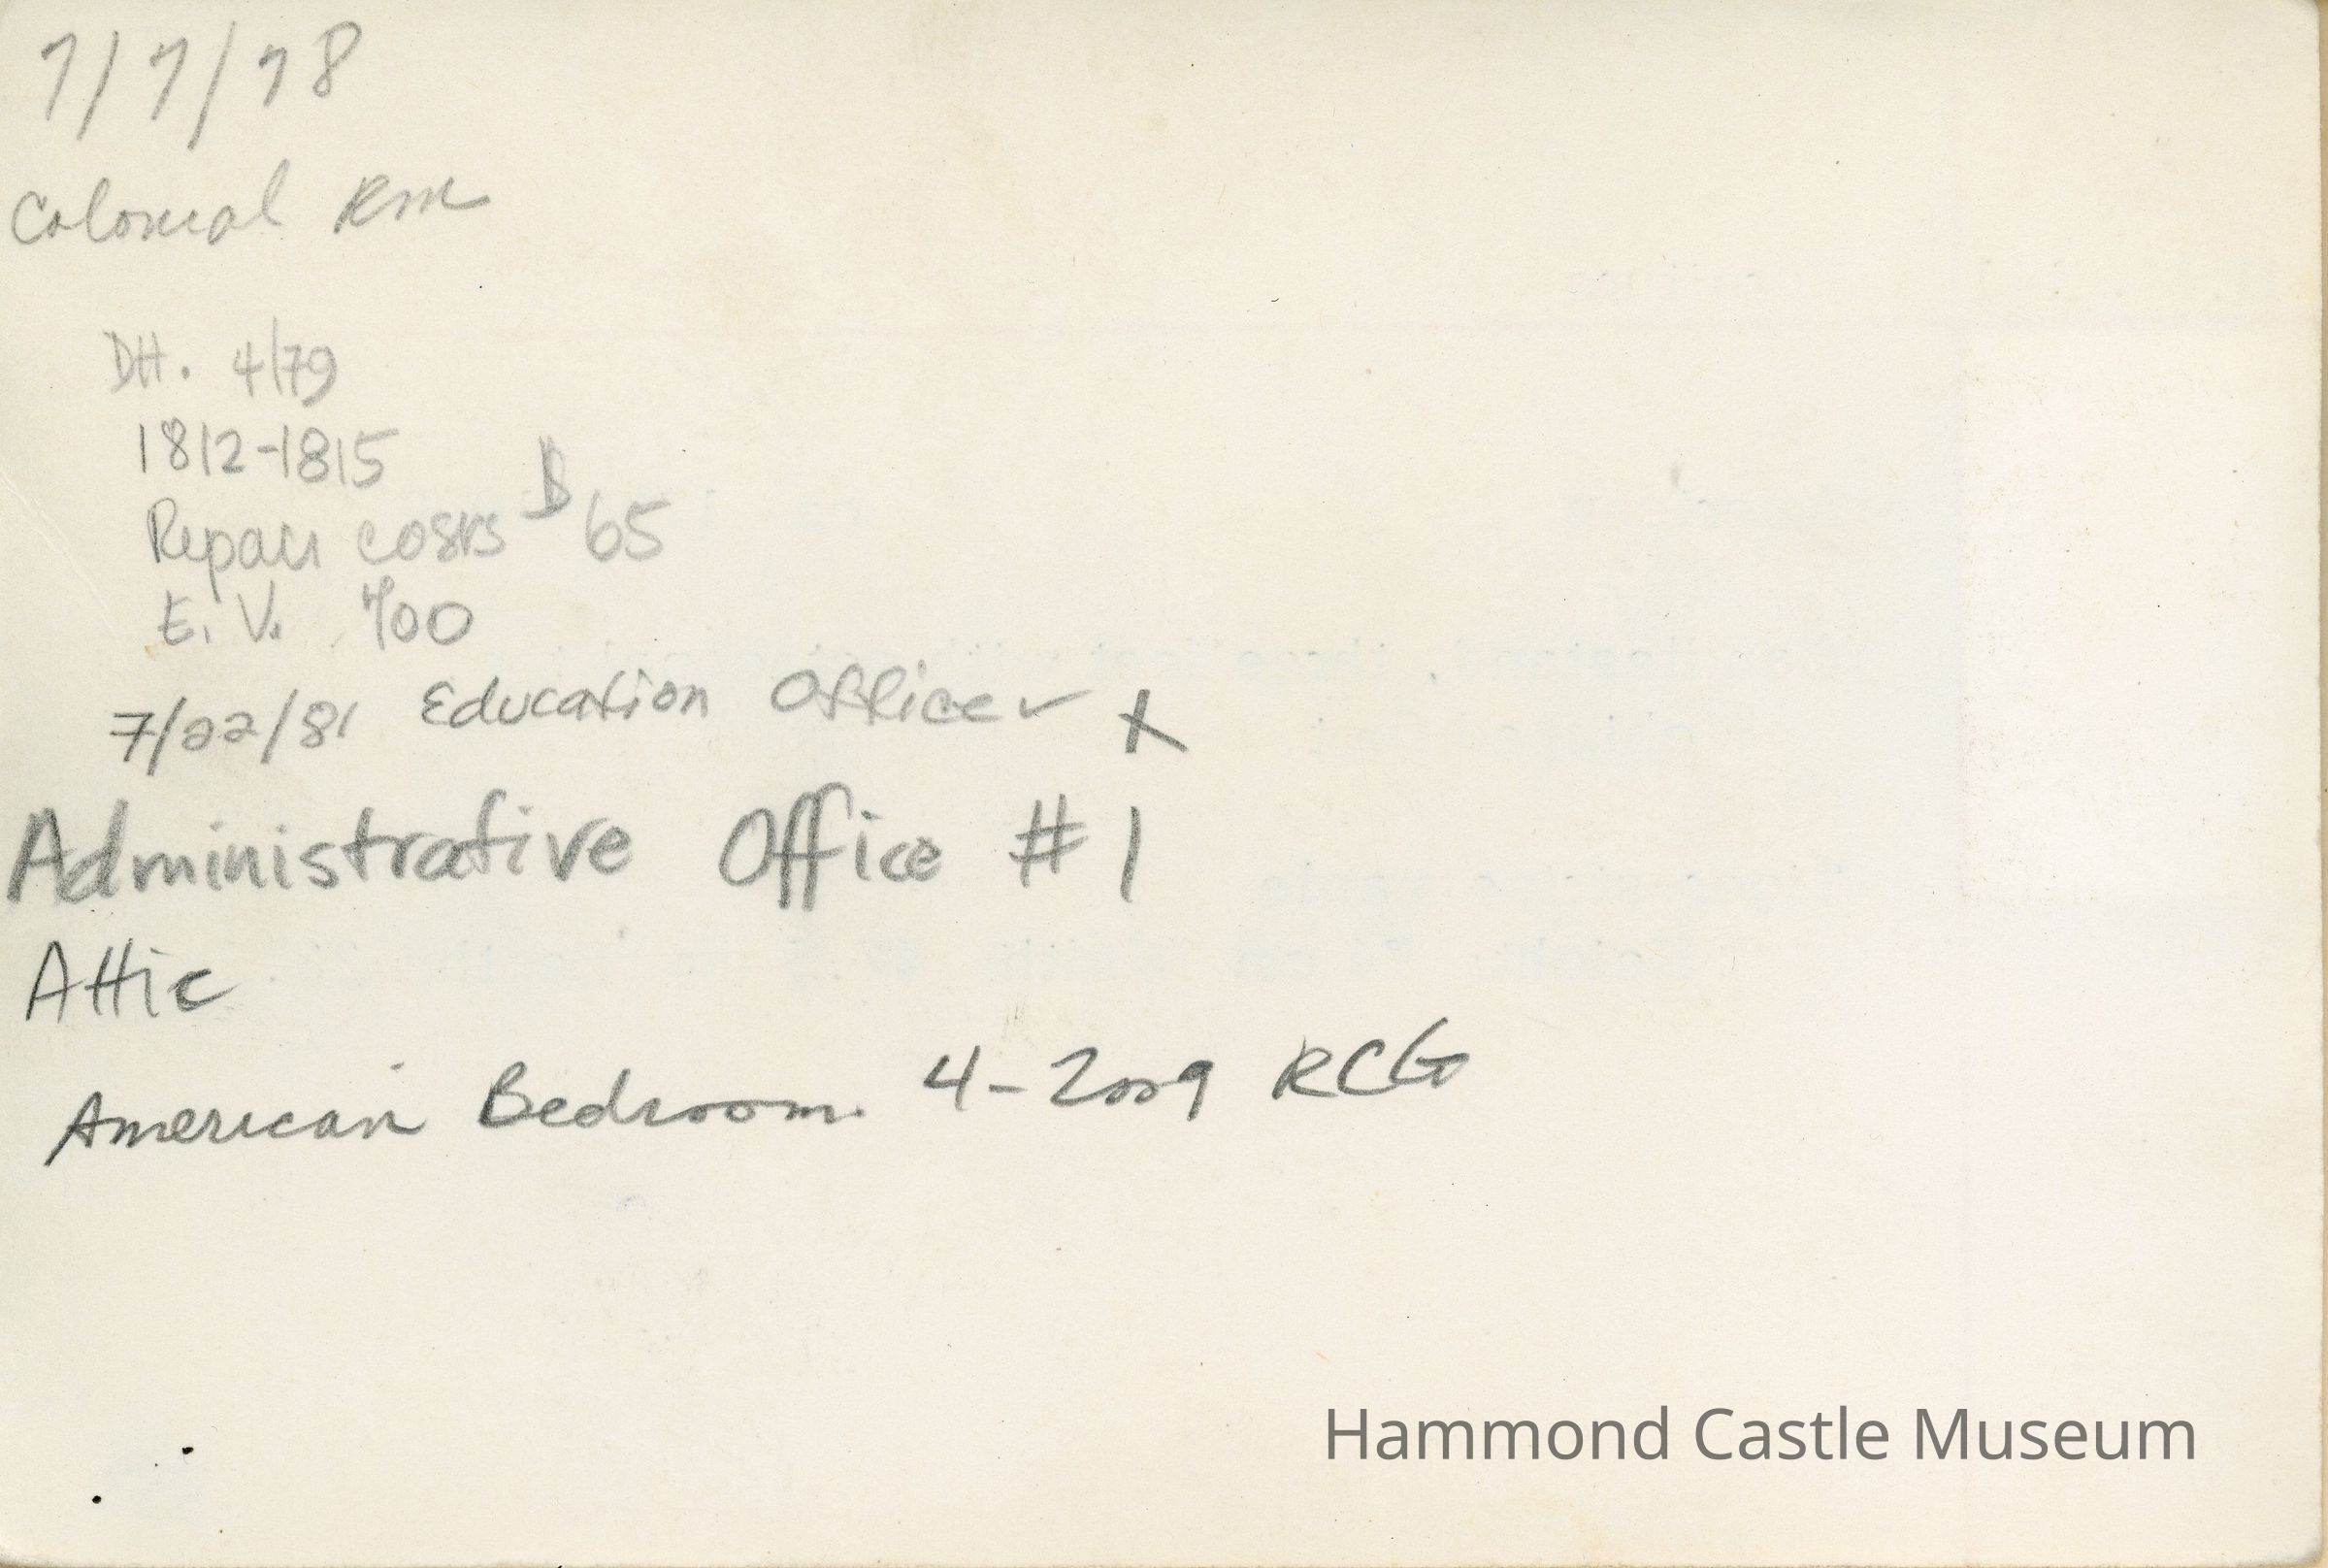 7/7/78
Colonial Rm
DH. 4/79
1812-1815
Repair costs $65
E.V. 700
7/22/81 Education Office ✓ X
Administrative Office #1
Attic
American Bedroom. 4-2009 RCG
Hammond Castle Museum